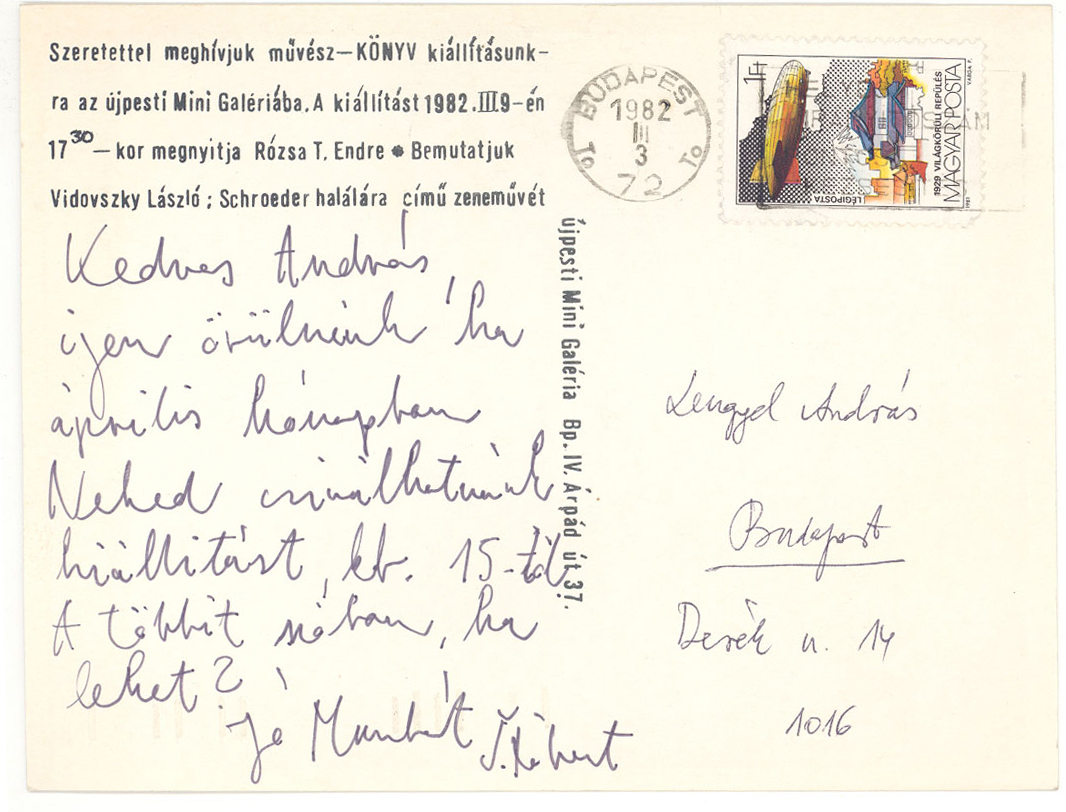 Szeretettel meghívjuk művész–KÖNYV kiállításunk–
ra az újpesti Mini Galériába. A kiállítást 1982. III 9–én
17 30 – kor megnyitja Rózsa T. Endre ● Bemutatjuk
Vidovszky László ; Schroeder halálára című zeneművét
Kedves András,
igen örülnénk ha
április hónapban
Neked csinálhatnánk
kiállítást, kb. 15-től.
A többit szóban, ha
lehet?
Jó Munkát
Róbert
újpesti Mini Galéria Bp. IV. Árpád út 37.
BUDAPEST
1982
III
3
72
To
To
1 Ft
LÉGIPOSTA
1929 VILÁGKÖRÜLI REPÜLÉS
MAGYAR POSTA
VARGA P.
1981
Lengyel András
Budapest
Derék u. 14
1016